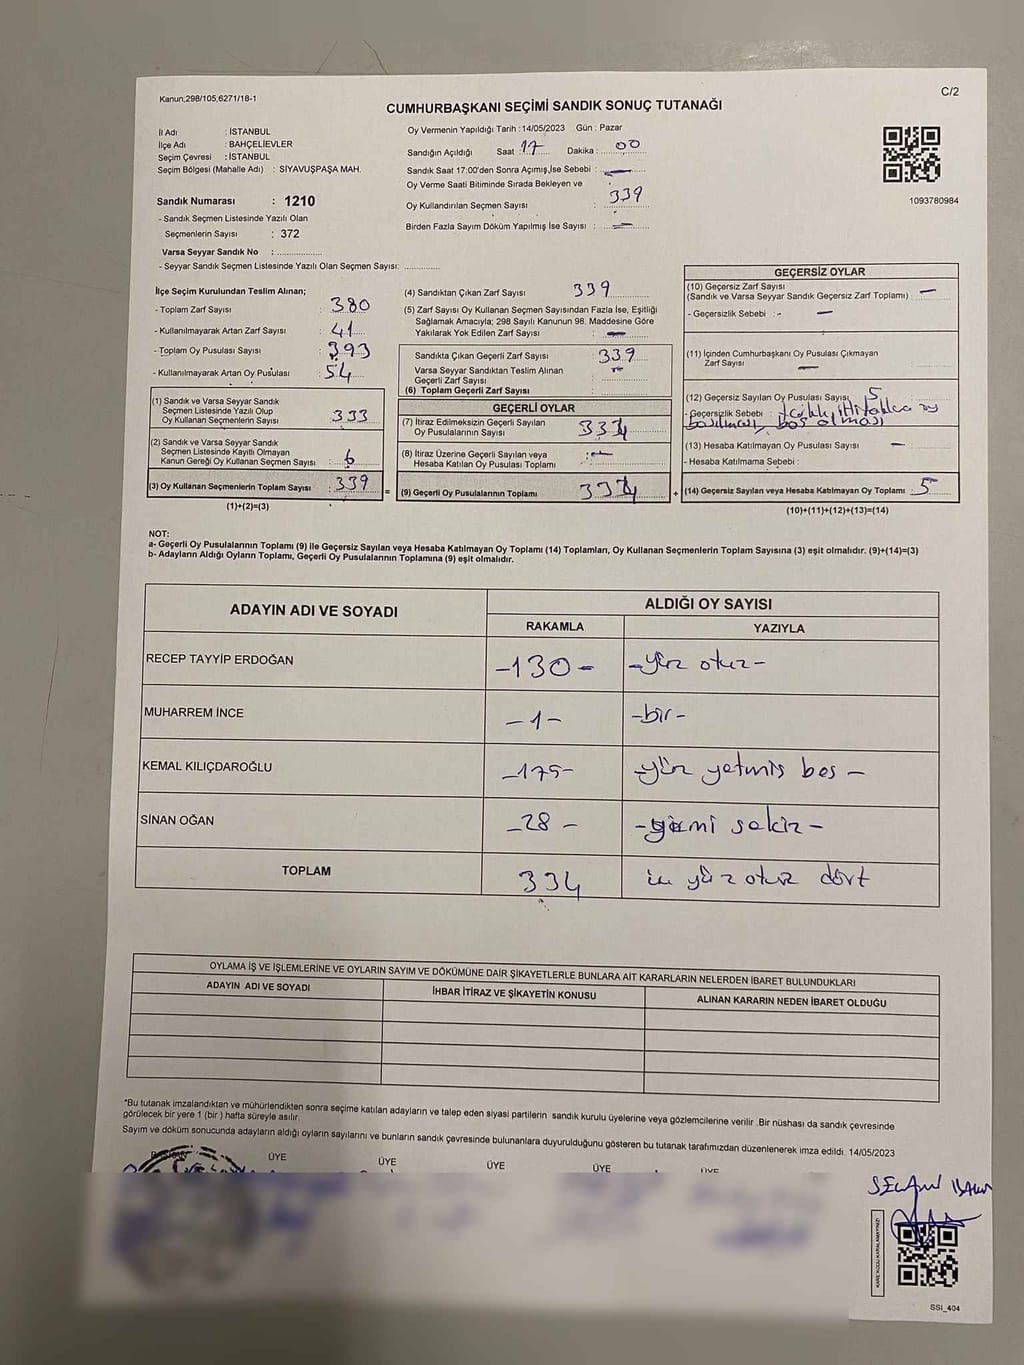 Kanun;298/105,6271/18-1
C/2
CUMHURBAŞKANI SEÇİMİ SANDIK SONUÇ TUTANAĞI
İl Adı : İSTANBUL
İlçe Adı : BAHÇELİEVLER
Seçim Çevresi : İSTANBUL
Seçim Bölgesi (Mahalle Adı) : SİYAVUŞPAŞA MAH.
Oy Vermenin Yapıldığı Tarih : 14/05/2023 Gün : Pazar
Sandığın Açıldığı Saat : 17 Dakika : 00
Sandık Saat 17:00'den Sonra Açımış,İse Sebebi : —
Oy Verme Saati Bitiminde Sırada Bekleyen ve
Oy Kullandırılan Seçmen Sayısı : 339
Birden Fazla Sayım Döküm Yapılmış İse Sayısı : —
1093780984
Sandık Numarası : 1210
- Sandık Seçmen Listesinde Yazılı Olan
Seçmenlerin Sayısı : 372
Varsa Seyyar Sandık No :
- Seyyar Sandık Seçmen Listesinde Yazılı Olan Seçmen Sayısı:
İlçe Seçim Kurulundan Teslim Alınan;
- Toplam Zarf Sayısı : 380
- Kullanılmayarak Artan Zarf Sayısı : 41
- Toplam Oy Pusulası Sayısı : 393
- Kullanılmayarak Artan Oy Pusulası : 54
(1) Sandık ve Varsa Seyyar Sandık
Seçmen Listesinde Yazılı Olup
Oy Kullanan Seçmen Sayısı : 333
(2) Sandık ve Varsa Seyyar Sandık
Seçmen Listesinde Kayıtlı Olmayan
Kanun Gereği Oy Kullanan Seçmen Sayısı : 6
(3) Oy Kullanan Seçmenlerin Toplam Sayısı : 339
(1)+(2)=(3)
(4) Sandıktan Çıkan Zarf Sayısı : 339
(5) Zarf Sayısı Oy Kullanan Seçmen Sayısından Fazla İse, Eşitliği
Sağlamak Amacıyla; 298 Sayılı Kanunun 98. Maddesine Göre
Yakılarak Yok Edilen Zarf Sayısı : —
Sandıkta Çıkan Geçerli Zarf Sayısı : 339
Varsa Seyyar Sandıktan Teslim Alınan
Geçerli Zarf Sayısı :
(6) Toplam Geçerli Zarf Sayısı :
GEÇERLİ OYLAR
(7) İtiraz Edilmeksizin Geçerli Sayılan
Oy Pusulalarının Sayısı : 334
(8) İtiraz Üzerine Geçerli Sayılan veya
Hesaba Katılan Oy Pusulası Toplamı : —
= (9) Geçerli Oy Pusulalarının Toplamı : 334
GEÇERSİZ OYLAR
(10) Geçersiz Zarf Sayısı
(Sandık ve Varsa Seyyar Sandık Geçersiz Zarf Toplamı) : —
- Geçersizlik Sebebi : - —
(11) İçinden Cumhurbaşkanı Oy Pusulası Çıkmayan
Zarf Sayısı : —
(12) Geçersiz Sayılan Oy Pusulası Sayısı : 5
- Geçersizlik Sebebi : oy
basılması, boş olması
(13) Hesaba Katılmayan Oy Pusulası Sayısı : —
- Hesaba Katılmama Sebebi :
+ (14) Geçersiz Sayılan veya Hesaba Katılmayan Oy Toplamı : 5
(10)+(11)+(12)+(13)=(14)
NOT:
a- Geçerli Oy Pusulalarının Toplamı (9) ile Geçersiz Sayılan veya Hesaba Katılmayan Oy Toplamı (14) Toplamları, Oy Kullanan Seçmenlerin Toplam Sayısına (3) eşit olmalıdır. (9)+(14)=(3)
b- Adayların Aldığı Oyların Toplamı, Geçerli Oy Pusulalarının Toplamına (9) eşit olmalıdır.
ADAYIN ADI VE SOYADI
ALDIĞI OY SAYISI
RAKAMLA YAZIYLA
RECEP TAYYİP ERDOĞAN -130- -yüz otuz-
MUHARREM İNCE -1- -bir-
KEMAL KILIÇDAROĞLU -175- -yüz yetmiş beş-
SİNAN OĞAN -28- -yirmi sekiz-
TOPLAM 334 üç yüz otuz dört
OYLAMA İŞ VE İŞLEMLERİNE VE OYLARIN SAYIM VE DÖKÜMÜNE DAİR ŞİKAYETLERLE BUNLARA AİT KARARLARIN NELERDEN İBARET BULUNDUKLARI
ADAYIN ADI VE SOYADI İHBAR İTİRAZ VE ŞİKAYETİN KONUSU ALINAN KARARIN NEDEN İBARET OLDUĞU
*Bu tutanak imzalandıktan ve mühürlendikten sonra seçime katılan adayların ve talep eden siyasi partilerin sandık kurulu üyelerine veya gözlemcilerine verilir .Bir nüshası da sandık çevresinde
görülecek bir yere 1 (bir ) hafta süreyle asılır.
Sayım ve döküm sonucunda adayların aldığı oyların sayılarını ve bunların sandık çevresinde bulunanlara duyurulduğunu gösteren bu tutanak tarafımızdan düzenlenerek imza edildi. 14/05/2023
BAŞKAN ÜYE ÜYE ÜYE ÜYE ÜYE
KARE KODU KARALAMAYINIZ!
SSI_404